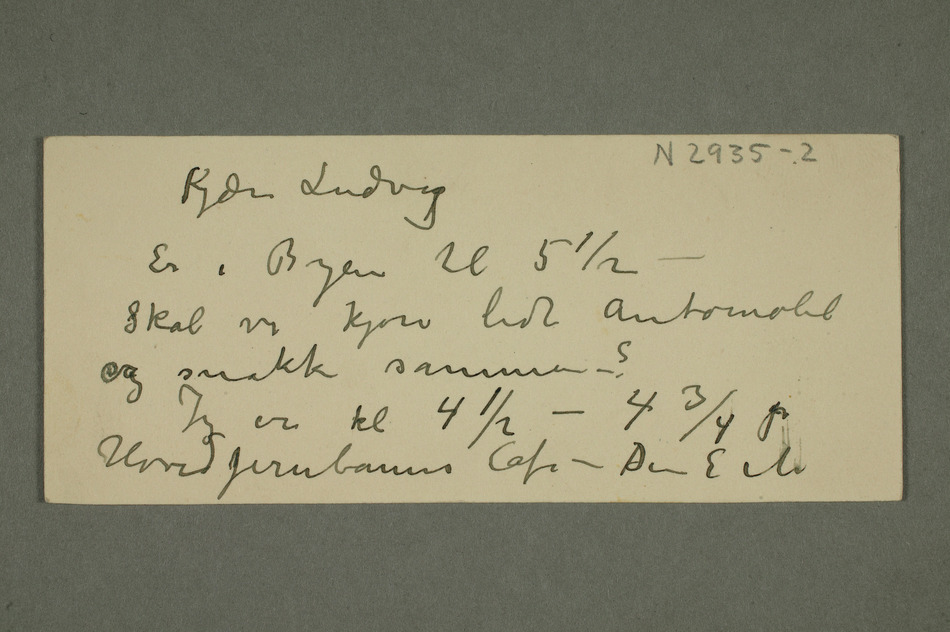 N 2935-.2
Kjære Ludvig
Er i Byen til 5 1/2 —
Skal vi kjøre lidt Automobil
og snakke sammen —?
Jeg er kl 4 1/2 — 4 3/4 på
Hovedjernbanens Cafe — Din E M